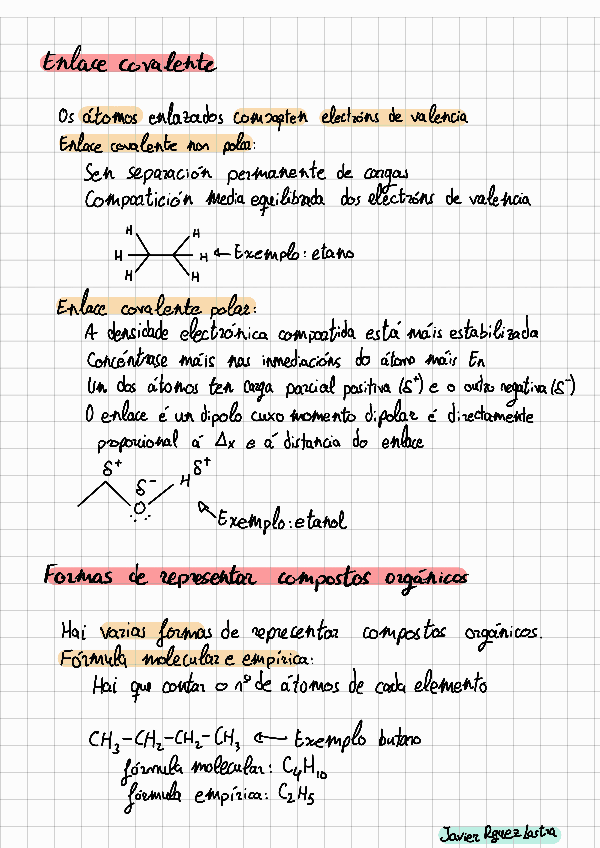 Enlace covalente
Os átomos enlazados comparten electróns de valencia
Enlace covalente non polar:
Sen separación permanente de cargas
Compartición media equilibrada dos electróns de valencia
H H
H H ← Exemplo: etano
H H
Enlace covalente polar:
A densidade electrónica compartida está máis estabilizada
Concéntrase máis nas inmediacións do átomo máis En
Un dos átomos ten carga parcial positiva (δ⁺) e o outro negativa (δ⁻)
O enlace é un dipolo cuxo momento dipolar é directamente
proporcional á Δx e á distancia do enlace
δ⁺ δ⁻ H δ⁺
O
Exemplo: etanol
Formas de representar compostos orgánicos
Hai varias formas de representar compostos orgánicos.
Fórmula molecular e empírica:
Hai que contar o nº de átomos de cada elemento
CH₃-CH₂-CH₂-CH₃ ← Exemplo butano
fórmula molecular: C₄H₁₀
fórmula empírica: C₂H₅
Javier Rguez Lastra